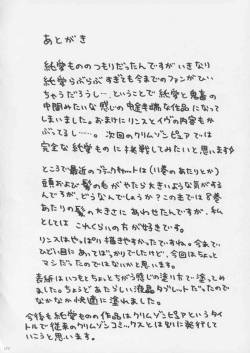 あとがき
純愛もののつもりだったんですがいきなり
純愛らぶらぶすぎても今までのファンがひい
ちゃうだろうし…、ということで純愛と鬼畜の
中間みたいな感じの中途半端な作品になって
しまいました。おまけにリンスとイヴの内容もか
ぶってるし……。次回のクリムゾンピュアでは
完全な純愛ものに挑戦してみたいと思います。
ところで最近のブラックキャットは（11巻のあたりとか）
頭および髪の毛がやたら大きいような気がする
んでるが、どうなんでしょうか？この本では8巻
あたりの髪の大きさにあわせたんですが、私
としてはこれくらいの方が好きです。
リンスはやっぱり描きやすかったですね。今までで
ひどい目にあってばっかりでしたけど、今回はちょっと
マシだったのではないかと思います。
表紙はいつもとちょっとちがう感じの塗り方で塗ってみ
ました。ちょうどあたらしい液晶タブレットだったので
なかなか快適に塗れました。
今後も純愛もの作品はクリムゾンピュアというタイ
トルで従来のクリムゾンコミックスとは別に発行して
いこうと思います。